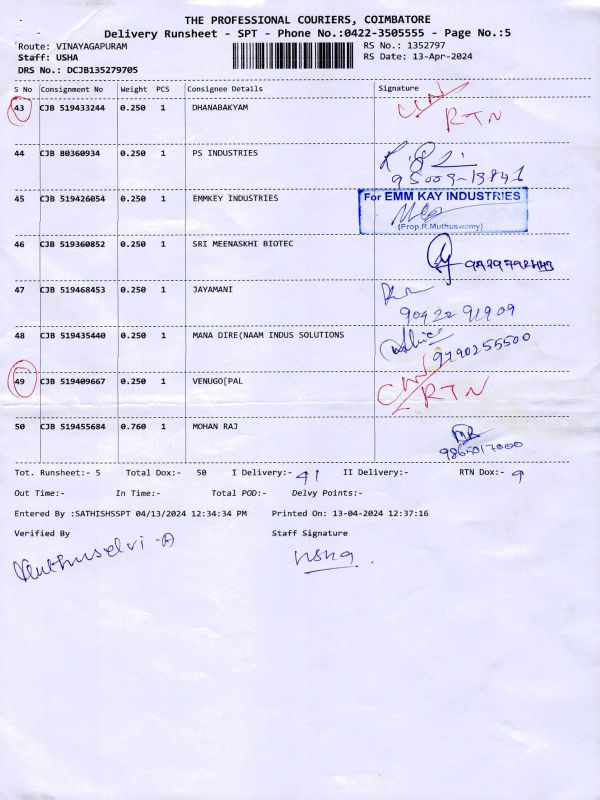 THE PROFESSIONAL COURIERS, COIMBATORE
Delivery Runsheet - SPT - Phone No.:0422-3505555 - Page No.:5
Route: VINAYAGAPURAM RS No.: 1352797
Staff: USHA RS Date: 13-Apr-2024
DRS No.: DCJB135279705
S No Consignment No Weight PCS Consignee Details Signature
43 CJB 519433244 0.250 1 DHANABAKYAM RTN
44 CJB 80360934 0.250 1 PS INDUSTRIES
45 CJB 519426054 0.250 1 EMMKEY INDUSTRIES
For EMM KAY INDUSTRIES
(Prop.R.Muthuswamy)
46 CJB 519360852 0.250 1 SRI MEENASKHI BIOTEC
47 CJB 519468453 0.250 1 JAYAMANI
90422 91909
48 CJB 519435440 0.250 1 MANA DIRE(NAAM INDUS SOLUTIONS
9790255500
49 CJB 519409667 0.250 1 VENUGO[PAL RTN
50 CJB 519455684 0.760 1 MOHAN RAJ
Tot. Runsheet:- 5 Total Dox:- 50 I Delivery:- 41 II Delivery:- RTN Dox:- 9
Out Time:- In Time:- Total POD:- Delvy Points:-
Entered By :SATHISHSSPT 04/13/2024 12:34:34 PM Printed On: 13-04-2024 12:37:16
Verified By Staff Signature
usha